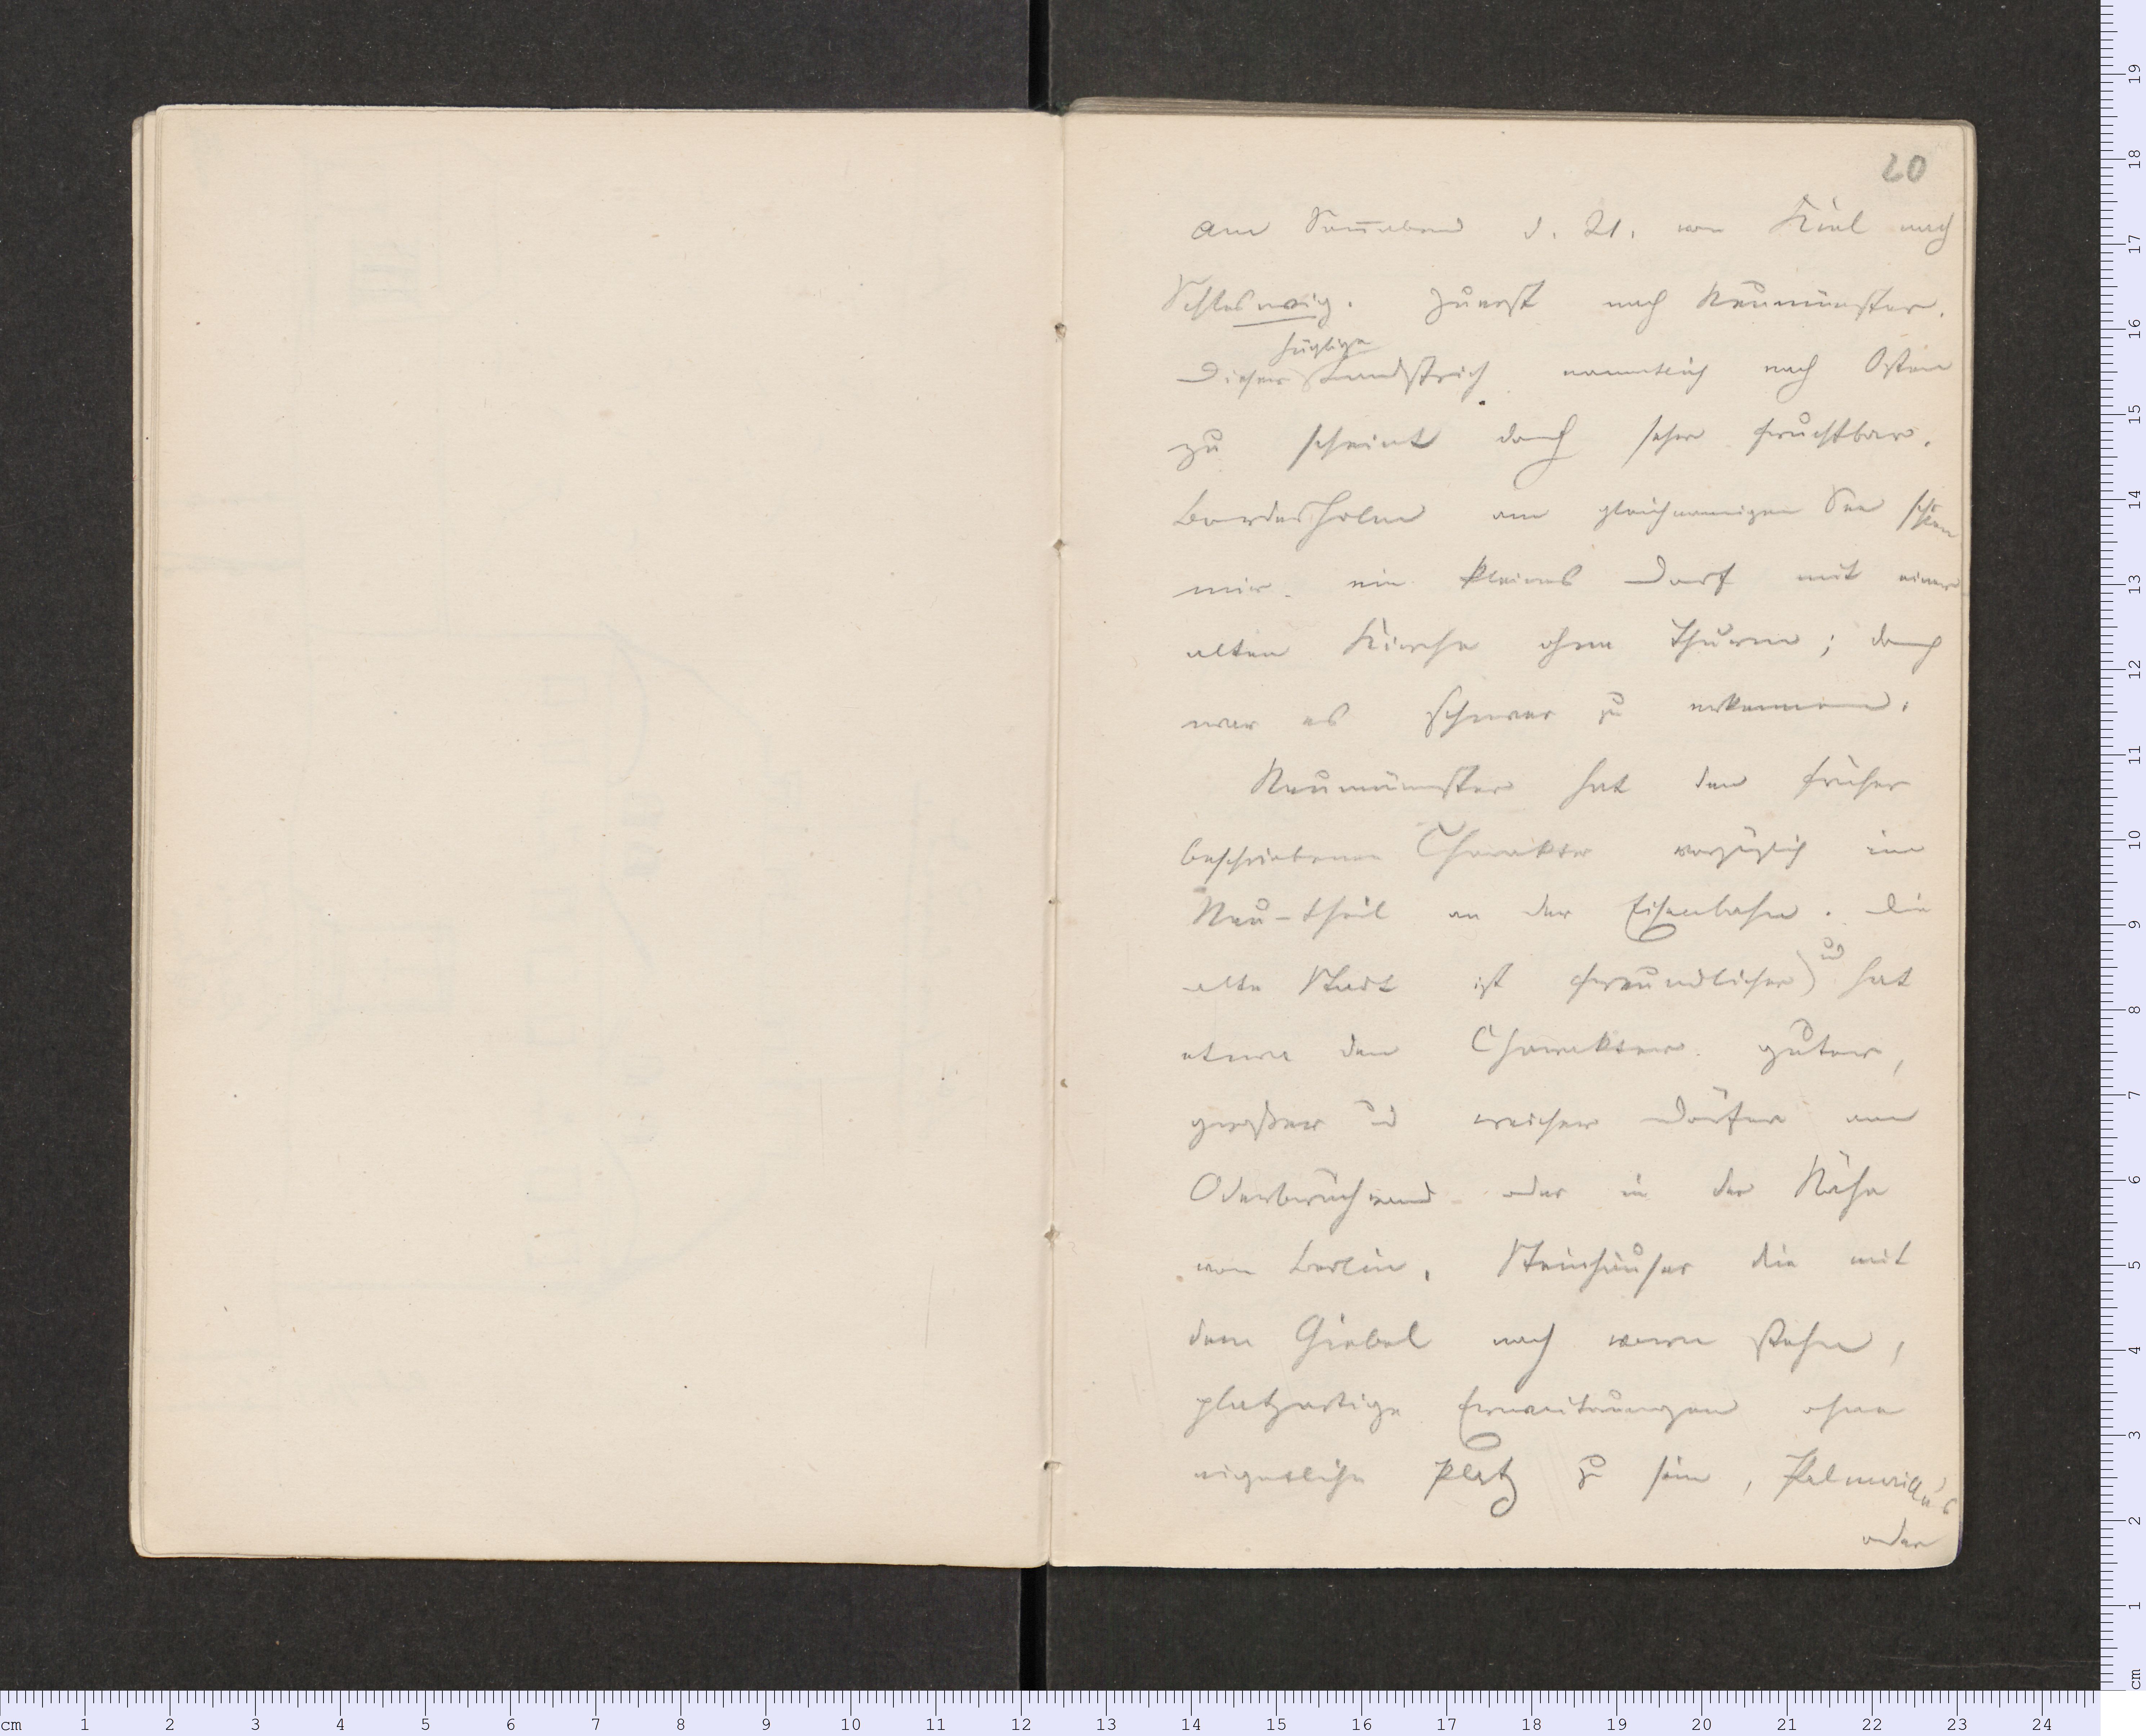 20
Am Sonnabend d. 21. von Kiel nach
Schleswig. Zuerst nach Neumünster.
hüglige
Dieser Landstrich namentlich nach Osten
zu scheint doch sehr fruchtbar.
Bordesholm am gleichnamigen See schien
mir ein kleines Dorf mit einer
alten Kirche ohne Thurm; doch
war es schwer zu erkennen.
Neumünster hat den früher
beschriebenen Charakter vorzüglich im
Neu-theil an der Eisenbahn. Die
alte Stadt ist freundlicher und hat
etwa den Charakter guter,
großer und reicher Dörfer am
Oderbruchrand oder in der Nähe
von Berlin. Steinhäuser die mit
dem Giebel nach vorn stehn,
platzartige Erweiterungen ohne
eigentliche Platz zu sein,
oder